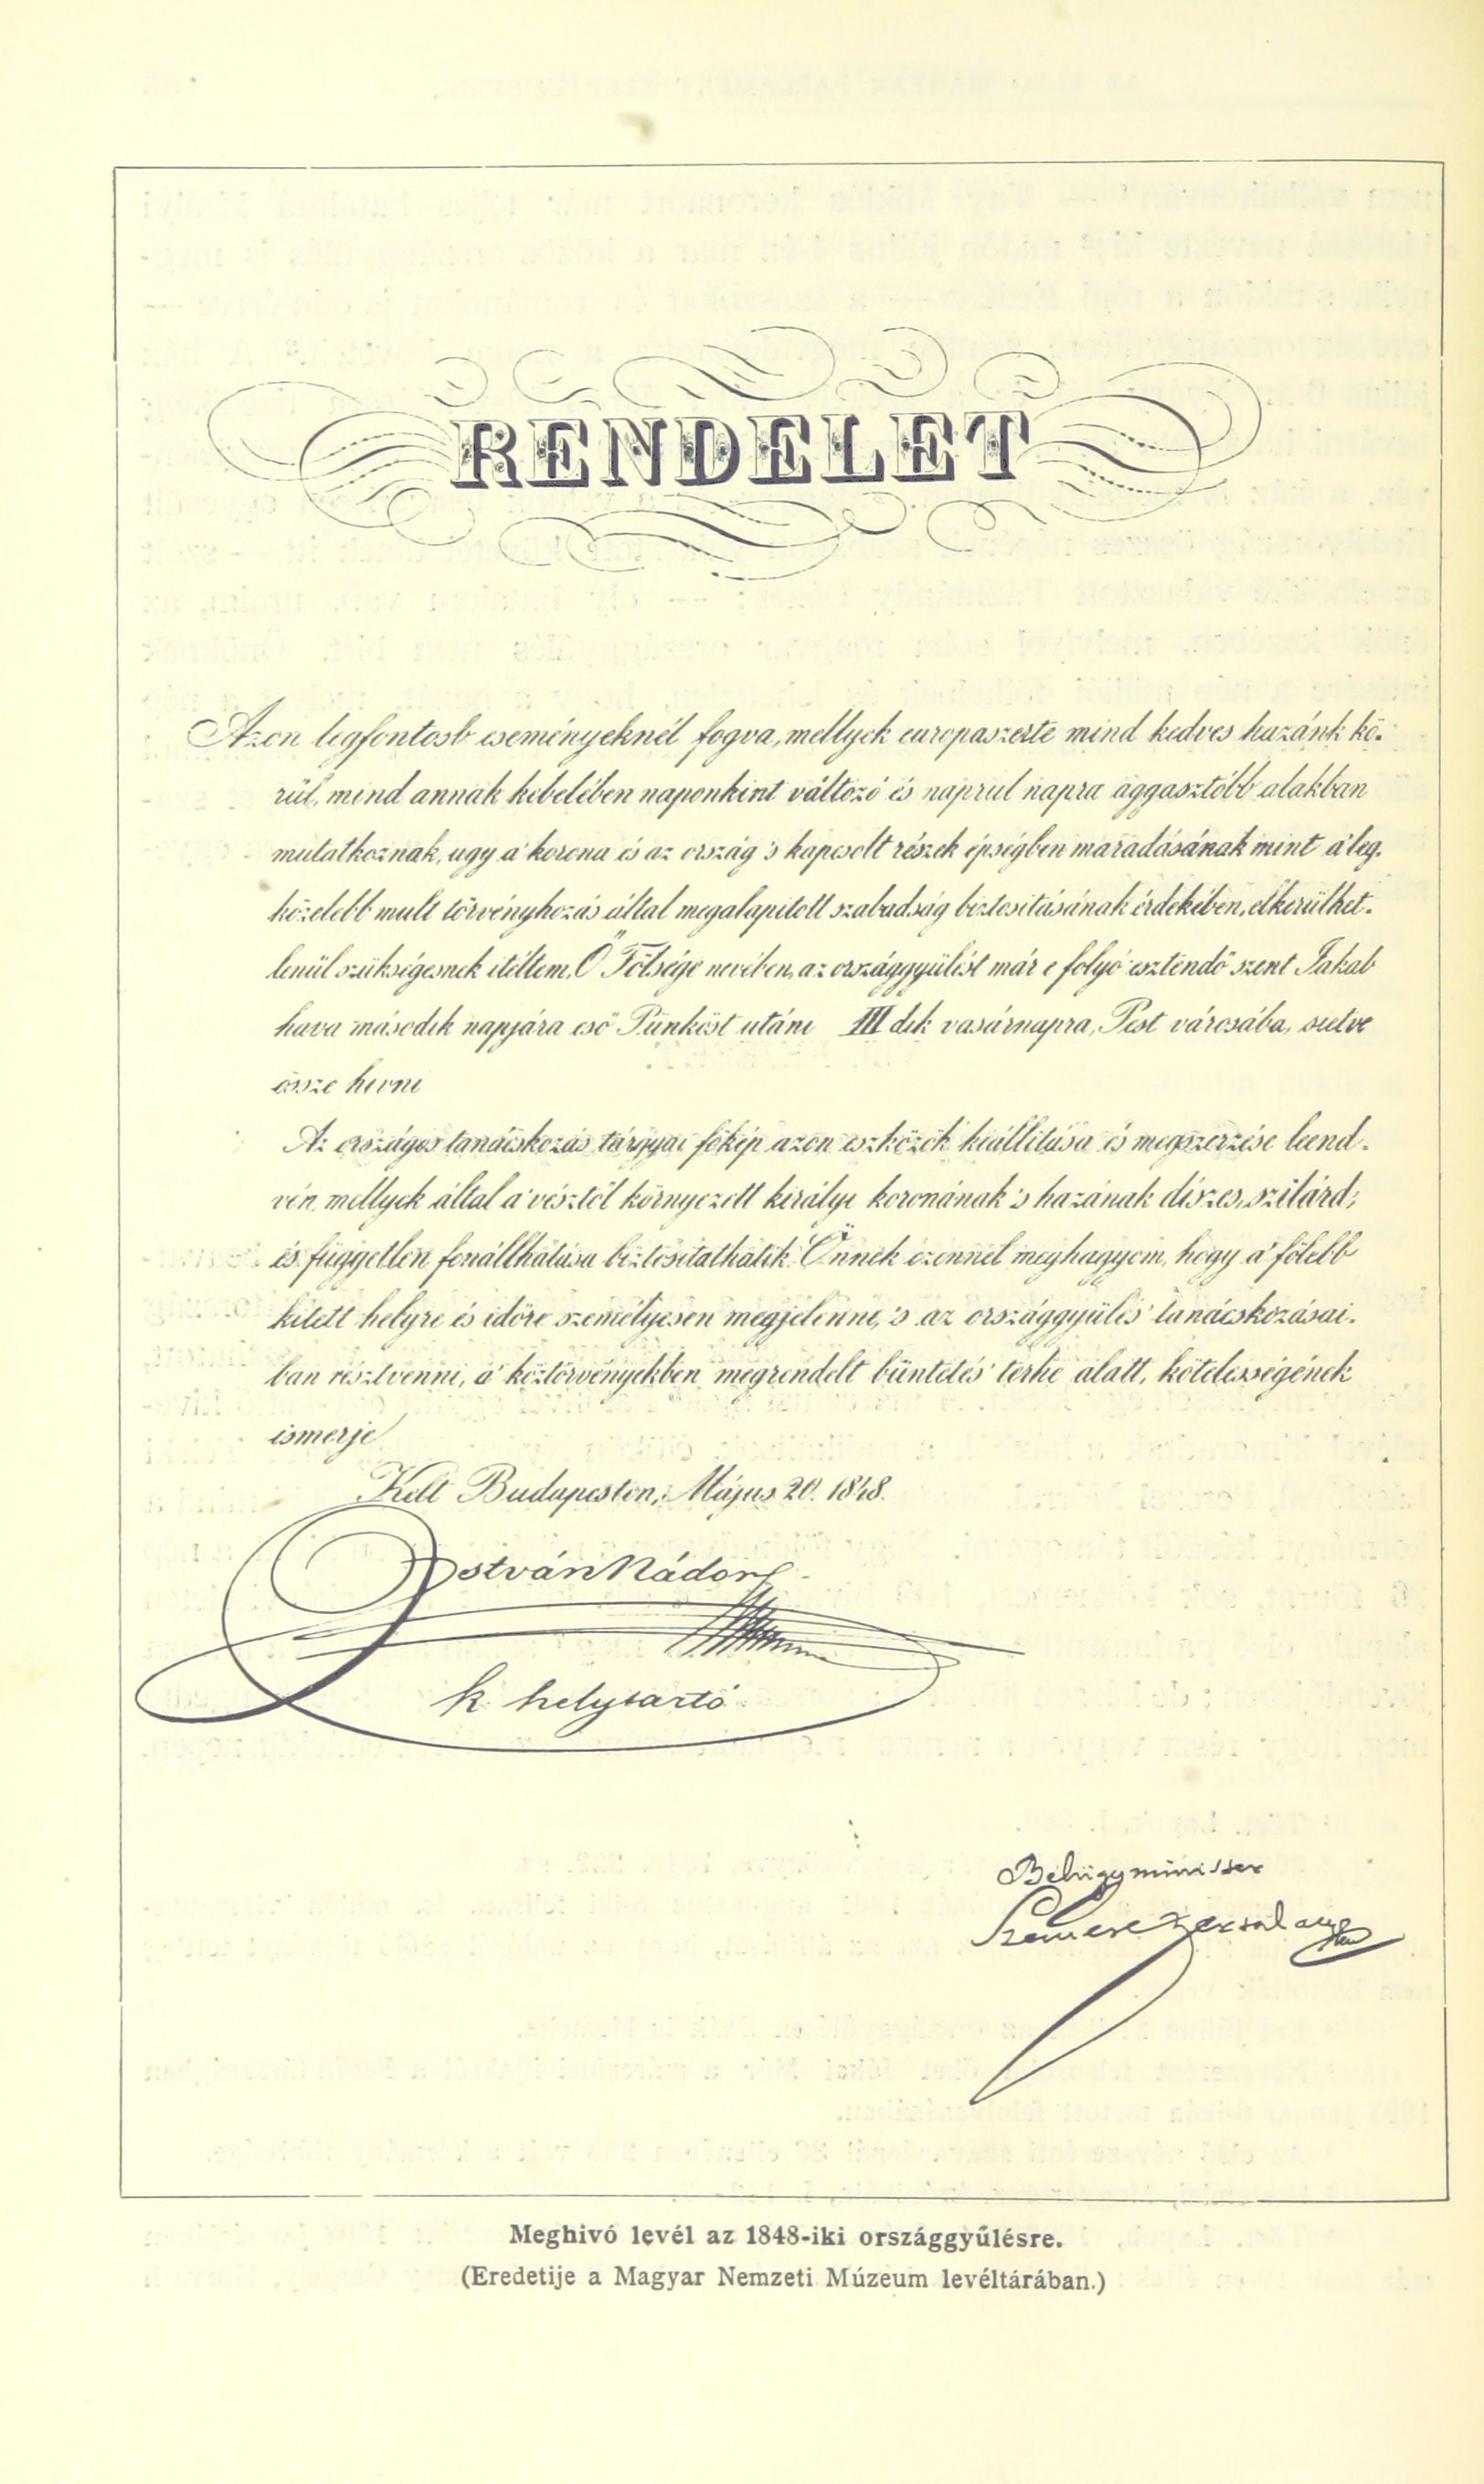 RENDELET
Azon legfontosb eseményeknél fogva, mellyek europaszerte mind kedves hazánk kö-
rül, mind annak kebelében naponkint változó és naprul napra aggasztóbb alakban
mutatkoznak, ugy a' korona és az ország 's kapcsolt részek épségben maradásának mint a' leg-
közelebb mult törvényhozás által megalapitott szabadság biztositásának érdekében, elkerülhet-
lenül szükségesnek itéltem, Ő Fölsége nevében, az országgyülést már e folyó esztendő szent Jakab
hava második napjára eső Pünköst utáni III dik vasárnapra, Pest városába, sietve
össze hivni
Az országos tanácskozás tárgyai fökép azon eszközök kiállitása és megszerzése leend-
vén, mellyek által a' vésztől környezett királyi koronának 's hazának díszes, szilárd,
és független fenállhatása biztosítathatik. Önnek ezennel meghagyom, hogy a' fölebb
kitett helyre és időre személyesen megjelenni, 's az országgyülés' tanácskozásai-
ban résztvenni, a' köztörvényekben megrendelt büntetés' terhe alatt, kötelességének
ismerje
Kelt Budapesten, Május 20. 1848.
István Nádor
k helytartó
Belügyminiszer
Szemere
Meghivó levél az 1848-iki országgyűlésre.
(Eredetije a Magyar Nemzeti Múzeum levéltárában.)